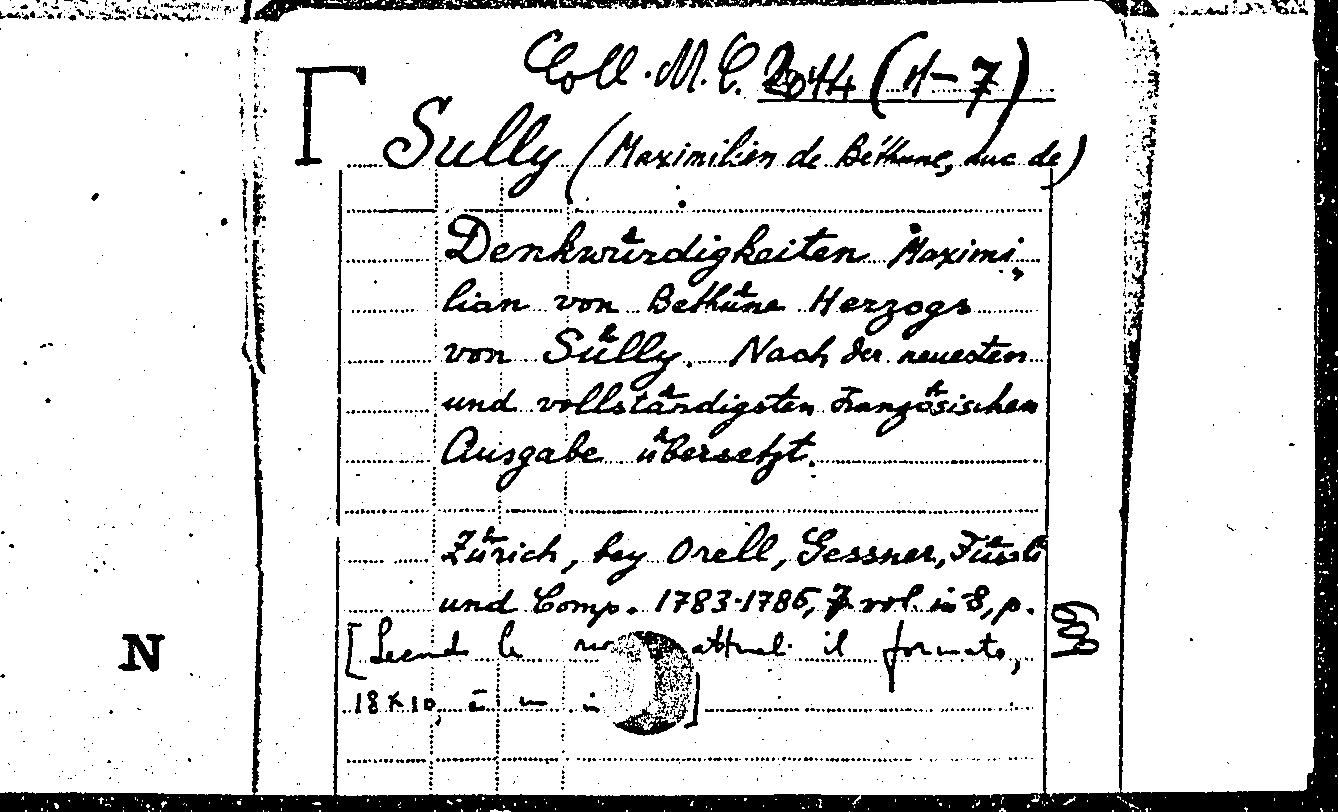 Coll. M. C. 2044 (1-7)
Sully (Maximilien de Béthune, duc de)
Denkwürdigkeiten Maximi,,
lian von Bethüne Herzogs
von Sülly. Nach der neuesten
und vollständigsten Französischen
Ausgabe übersetzt.
Zürich, bey Orell, Gessner, Füssli
und Comp. 1783-1786, 7 vol. in 8, p.
[Secondo le attuali il formato,
18x10, è un in ]
N